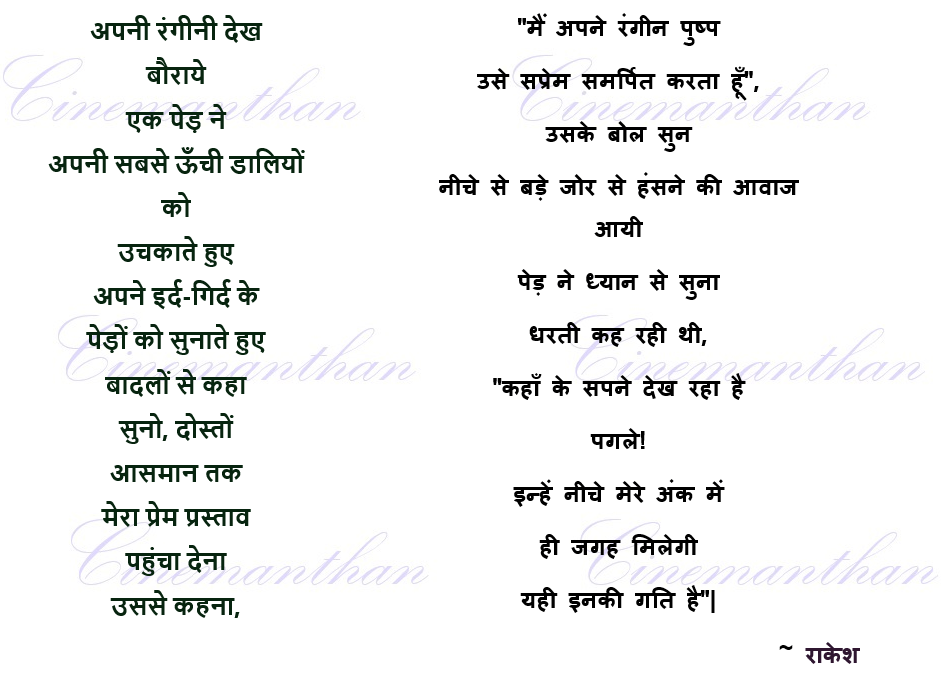 अपनी रंगीनी देख
बौराये
एक पेड़ ने
अपनी सबसे ऊँची डालियों
को
उचकाते हुए
अपने इर्द-गिर्द के
पेड़ों को सुनाते हुए
बादलों से कहा
सुनो, दोस्तों
आसमान तक
मेरा प्रेम प्रस्ताव
पहुंचा देना
उससे कहना,
"मैं अपने रंगीन पुष्प
उसे सप्रेम समर्पित करता हूँ",
उसके बोल सुन
नीचे से बड़े जोर से हंसने की आवाज
आयी
पेड़ ने ध्यान से सुना
धरती कह रही थी,
"कहाँ के सपने देख रहा है
पगले!
इन्हें नीचे मेरे अंक में
ही जगह मिलेगी
यही इनकी गति है"|
~ राकेश
Cinemanthan
Cinemanthan
Cinemanthan
Cinemanthan
Cinemanthan
Cinemanthan